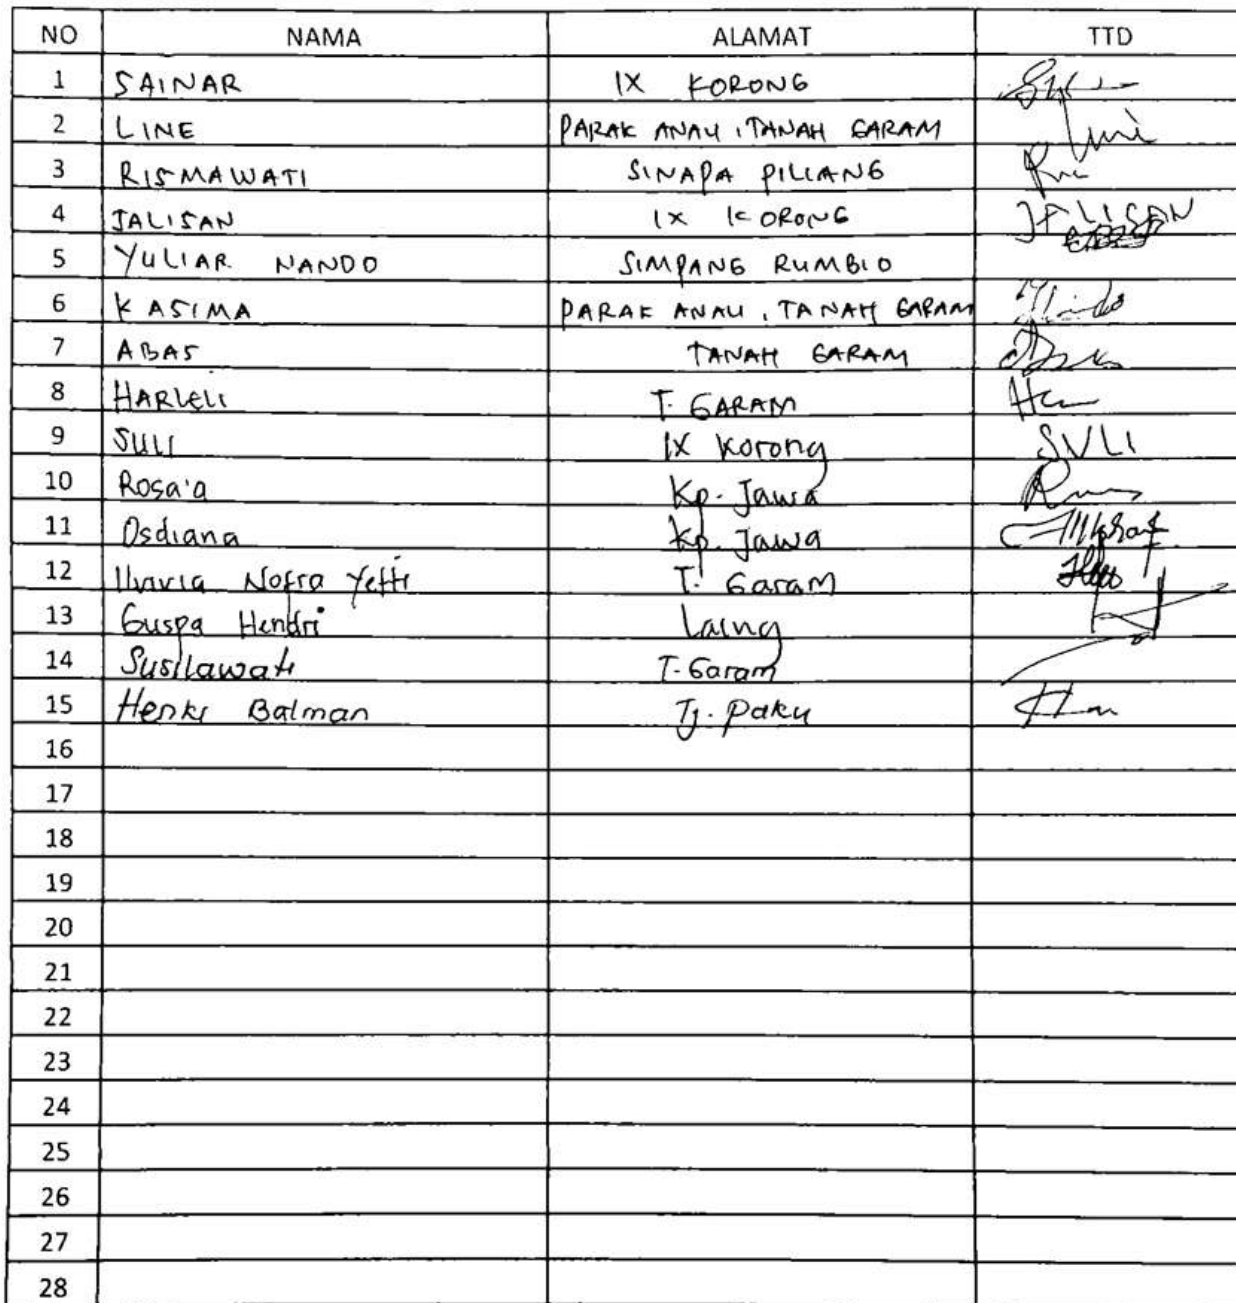 NO NAMA ALAMAT TTD
1 SAINAR IX KORONG
2 LINE PARAK ANAU, TANAH GARAM
3 RISMAWATI SINAPA PILIANG
4 JALISAN IX KORONG JALISAN
5 YULIAR NANDO SIMPANG RUMBIO
6 KASIMA PARAK ANAU, TANAH GARAM
7 ABAS TANAH GARAM
8 HARLELI T. GARAM
9 SULI IX Korong SULI
10 Rosa'a Kp. Jawa
11 Osdiana Kp. Jawa
12 Nofra Yetti T. Garam
13 Guspa Hendri Laing
14 Susilawati T. Garam
15 Henki Balman Tj. Paku
16
17
18
19
20
21
22
23
24
25
26
27
28